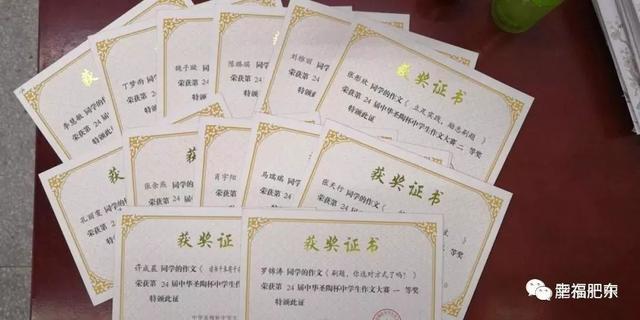 获
李慧敏 同学
荣获第 24
特颁此
获
丁梦雨 同学
荣获第 24
特颁此
获
魏子璇 同学
荣获第 24 届
特颁
获奖
陈璐瑞 同学
荣获第 24
获奖
刘雅丽 同学
荣获第 24
特颁
获奖证书
张彤欣 同学的作文《立足实践,励志刷题》
荣获第 24 届中华圣陶杯中学生作文大赛 二 等奖
特颁此证
孔丽雯 同学
荣获第 24
特颁此证
获
张余燕 同学
荣获第 24 届
特颁此证
获
肖宇阳 同学
荣获第 24
获奖
马瑞瑞 同学
荣获第 24 届
特颁此
获奖证书
张天行 同学的作文《
荣获第 24 届中华圣陶杯中学生作文大赛 等奖
特颁此证
获奖证
许成蕊 同学的作文《
荣获第 24 届中华圣陶杯中学生
特颁此证
中华圣陶杯中学生
获奖证书
罗锦涛 同学的作文《刷题,你选对方式了吗?》
荣获第 24 届中华圣陶杯中学生作文大赛 一 等奖
特颁此证
幸福肥东